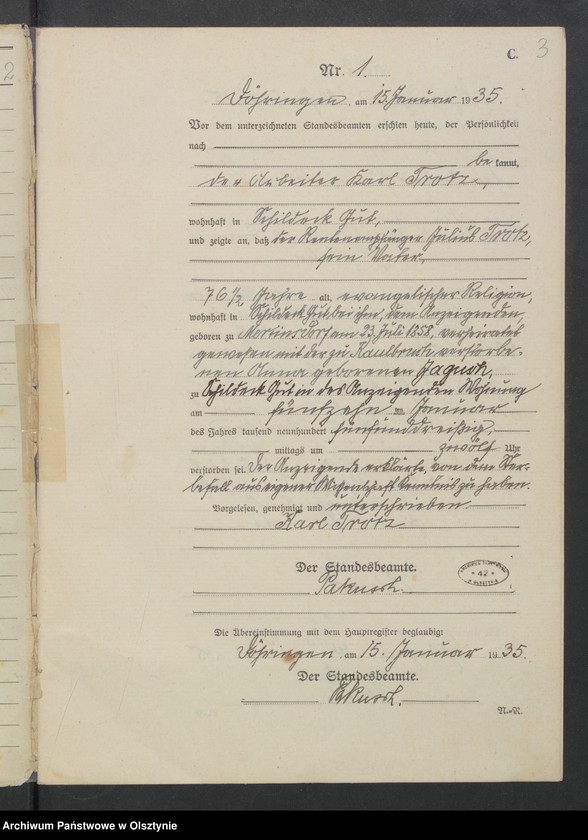 2
C. 3
Nr. 1.
Döhringen am 15 Januar 1935.
Vor dem unterzeichneten Standesbeamten erschien heute, der Persönlichkeit
nach
be kannt,
der Arbeiter Karl Trotz,
wohnhaft in Schildeck Gut,
und zeigte an, daß der Rentenempfänger Julius Trotz,
sein Vater,
76 1/2 Jahre alt, evangelischer Religion,
wohnhaft in Schildeck Gut bei ihm, dem Anzeigenden,
geboren zu am 23. Juli 1858, verheiratet
gewesen mit der zu verstorbe-
nen Anna geborenen Jagusch,
zu Schildeck Gut in des Anzeigenden Wohnung
am fünfzehn ten Januar
des Jahres tausend neunhundert fünfunddreißig,
mittags um zwölf Uhr
verstorben sei. Der Anzeigende erklärte, von dem Ster-
befall aus eigener Wissenschaft Kenntnis zu haben.
Vorgelesen, genehmigt und unterschrieben.
Karl Trotz
Der Standesbeamte.
42
Die Übereinstimmung mit dem Hauptregister beglaubigt
Döhringen am 15. Januar 1935.
Der Standesbeamte.
Archiwum Państwowe w Olsztynie